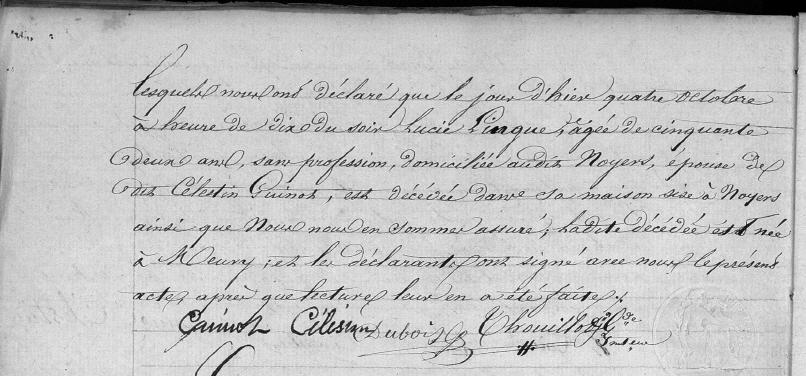 lesquels nous ont déclaré que le jour d'hier quatre octobre
à heure de dix du soir Lucie Pinque, âgée de cinquante
deux ans, sans profession, domiciliée audit Noyers, épouse de
dit Célestin Guinot, est décédée dans sa maison sise à Noyers
ainsi que Nous nous en sommes assuré; ladite décédée est née
à Meuvy; et les déclarants ont signé avec nous le présent
acte, après que lecture leur en a été faite.
Guinot Célestin Dubois Thouillot